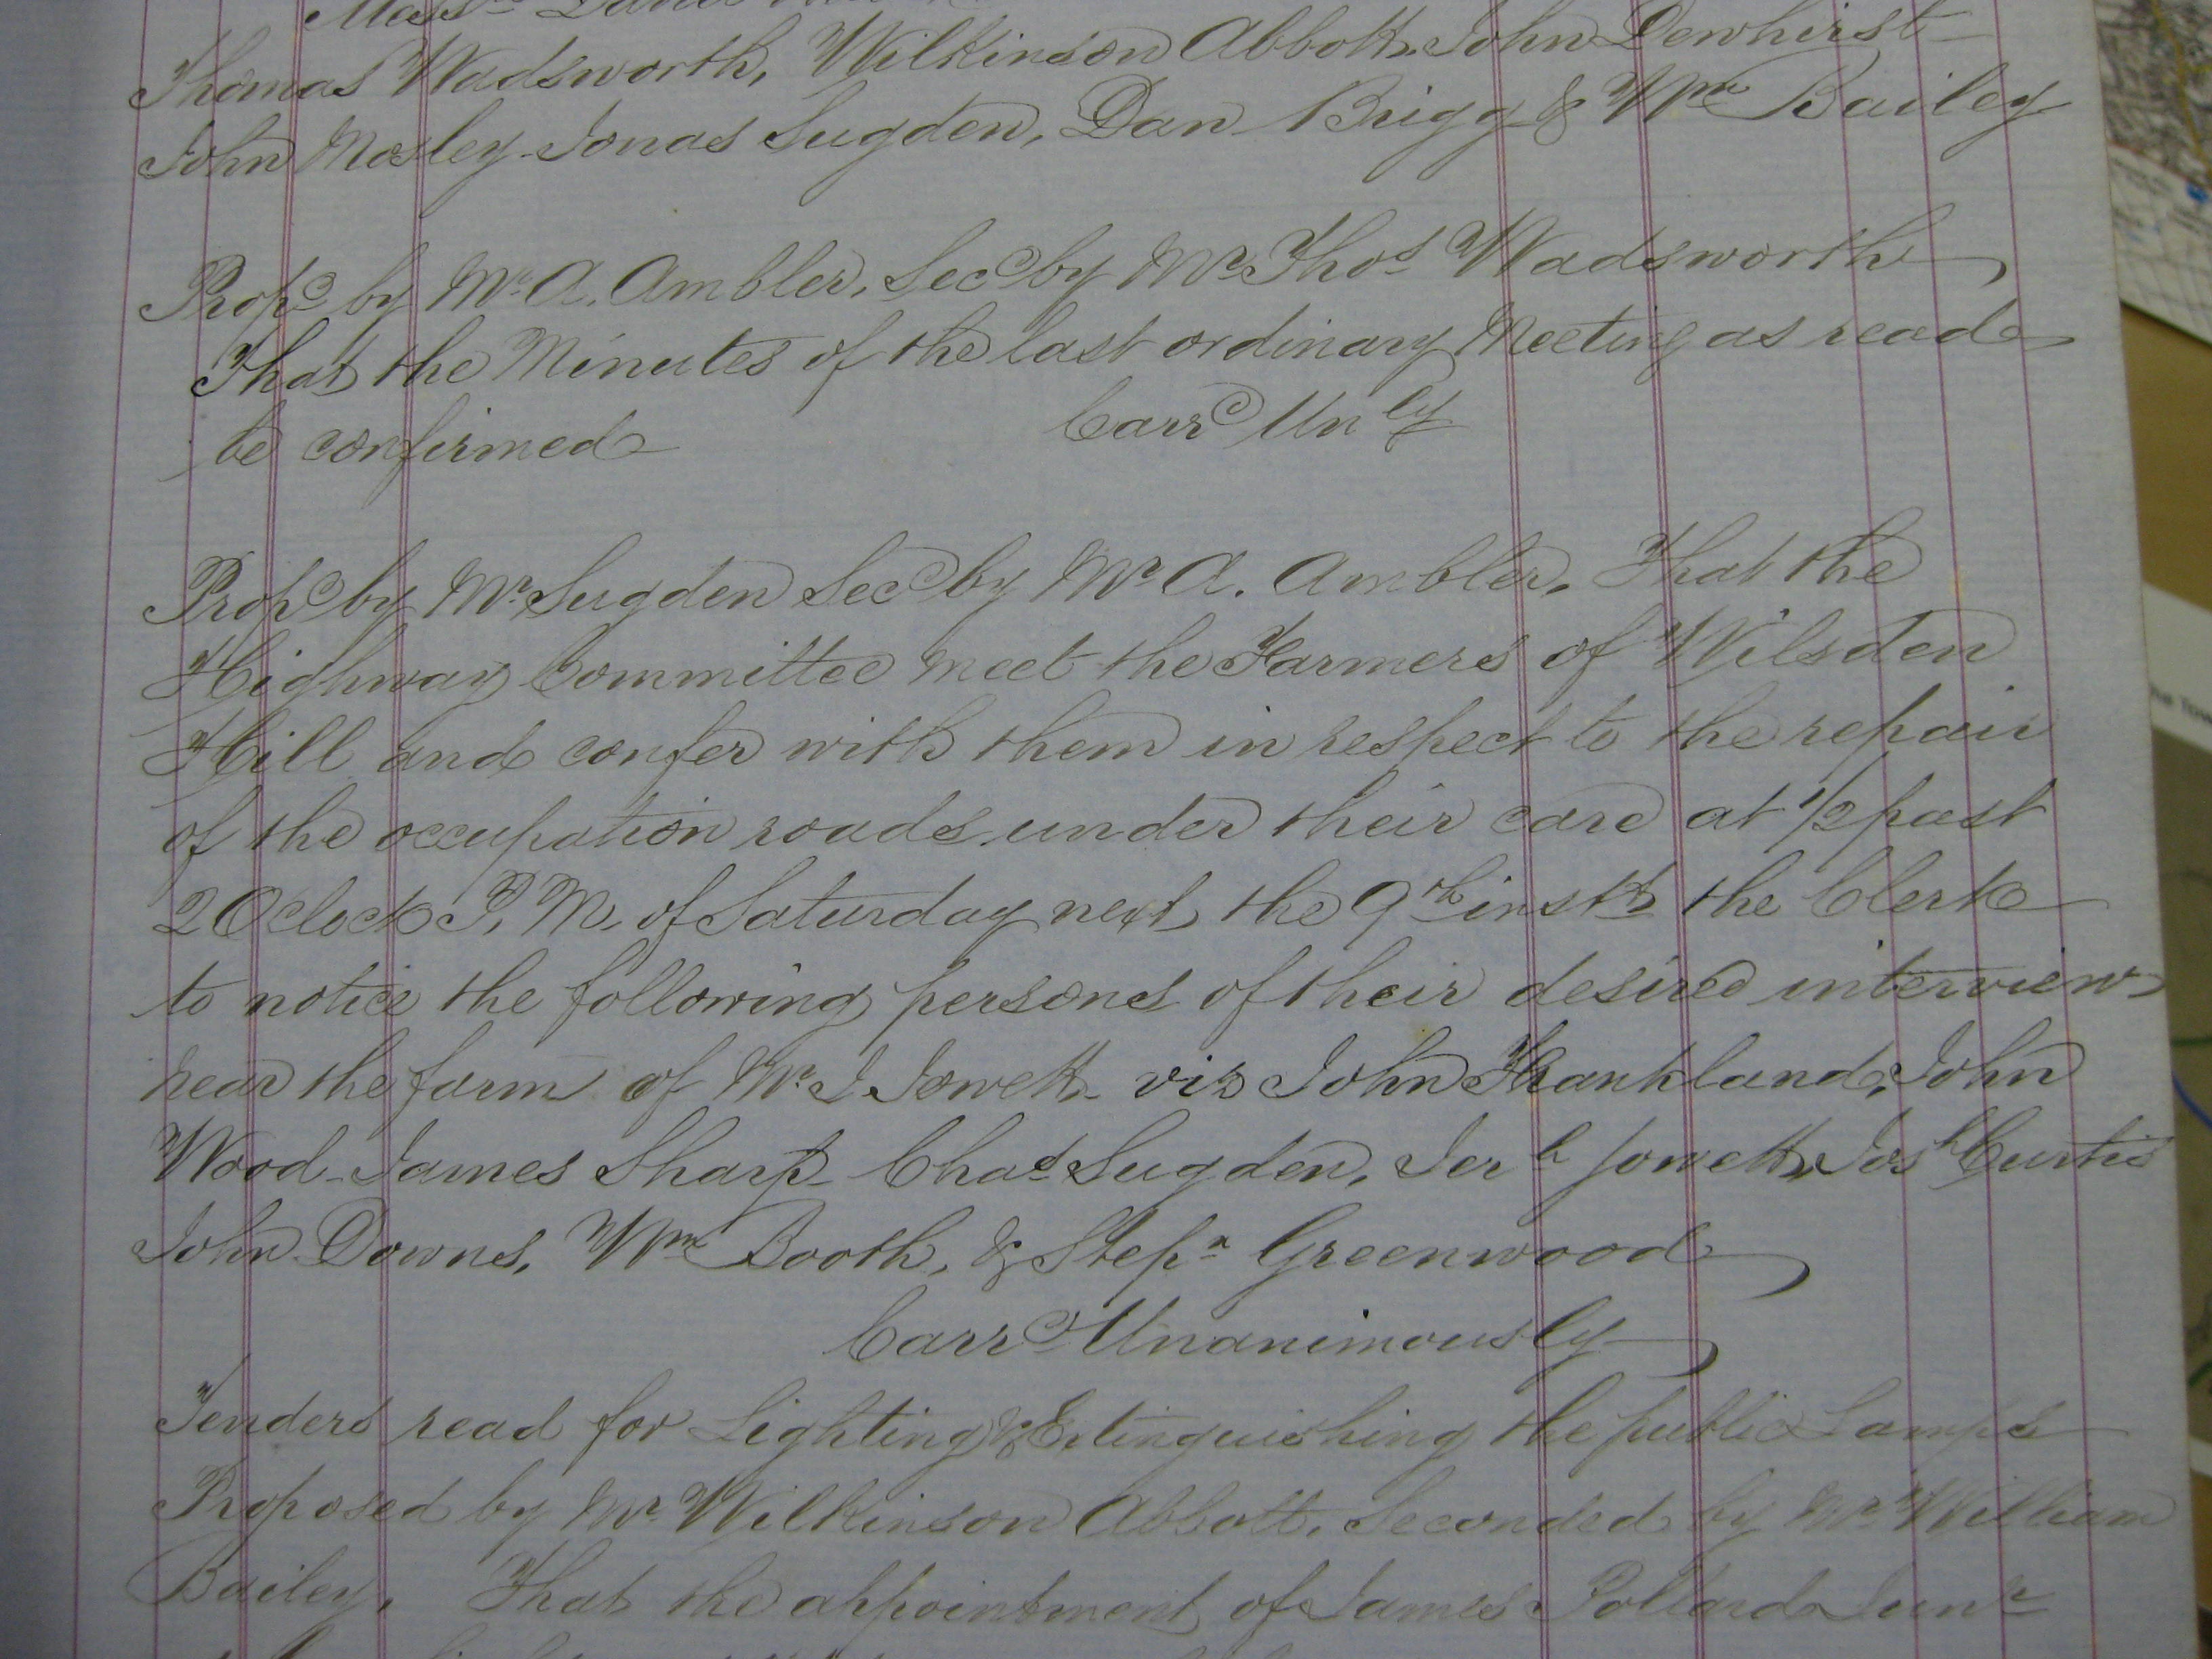 Thomas Wadsworth, Wilkinson Abbott, John Dewhirst
John Mosley - Jonas Sugden, Dan Brigg & Wm Bailey
Propd by Mr A. Ambler, Secd by Mr Thos Wadsworth
That the Minutes of the last ordinary Meeting as read
be confirmed Carrd Unly
Propd by Mr Sugden Secd by Mr A. Ambler, That the
Highway Committee meet the Farmers of Wilsden
Hill and confer with them in respect to the repair
of the occupation roads under their care at 1/2 past
2 Oclock P.M. of Saturday next, the 9th instt the Clerk
to notice the following persons of their desired interview
near the farm of Mr J Jowett - viz John Frankland, John
Wood - James Sharp - Chas Sugden, Jerh Jowett, Josh Curtis
John Downs, Wm Booth, & Stepn Greenwood
Carrd Unanimously
Tenders read for Lighting & Extinguishing the public Lamps
Proposed by Mr Wilkinson Abbott, Seconded by Mr William
Bailey, That the appointment of James Pollard Junr